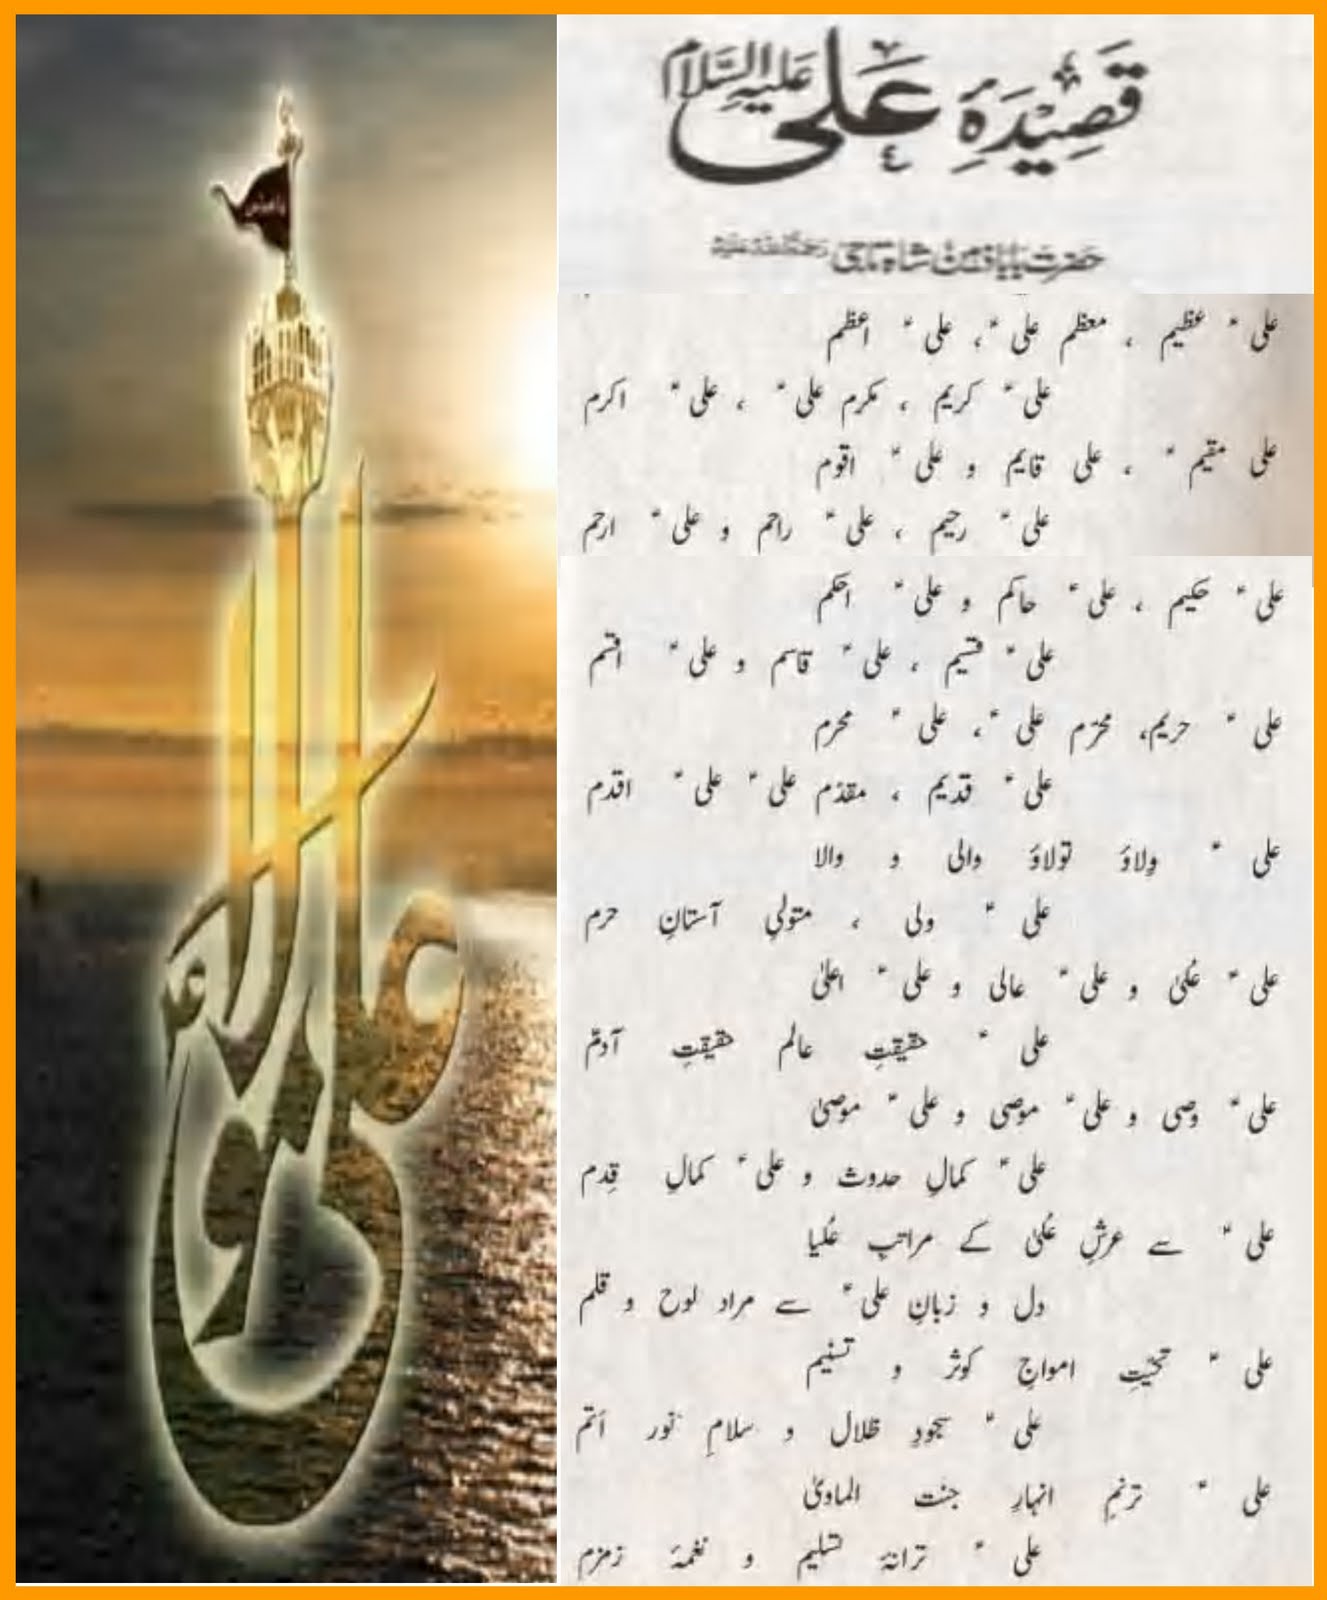 قصیدۂ علی علیہ السلام
حضرت بابا ذہین شاہ تاجی رحمۃ اللہ علیہ
علیؑ عظیم ، معظم علیؑ ، علیؑ اعظم
علیؑ کریم ، مکرم علیؑ ، علیؑ اکرم
علی مقیمؑ ، علی قایم و علیؑ اقوم
علیؑ رحیم ، علیؑ راحم و علیؑ ارحم
علیؑ حکیم ، علیؑ حاکم و علیؑ احکم
علیؑ قسیم ، علیؑ قاسم و علیؑ اقسم
علیؑ حریم، محرّم علیؑ ، علیؑ محرم
علیؑ قدیم ، مقدّم علیؑ علیؑ اقدم
علیؑ وِلاؤ تولاؤ والی و والا
علیؑ ولی ، متولیِ آستانِ حرم
علیؑ عُلیٰ و علیؑ عالی و علیؑ اعلیٰ
علیؑ حقیقتِ عالم حقیقتِ آدمؑ
علیؑ وصی و علیؑ موصی و علیؑ موصیٰ
علیؑ کمالِ حدوث و علیؑ کمالِ قِدم
علیؑ سے عرشِ عُلیٰ کے مراتبِ عُلیا
دل و زبانِ علیؑ سے مراد لوح و قلم
علیؑ تحیّتِ امواجِ کوثر و تسنیم
علیؑ سجودِ ظلال و سلامِ نور اُتم
علیؑ ترنمِ انہارِ جنت الماویٰ
علیؑ ترانۂ تسلیم و نغمۂ زمزم